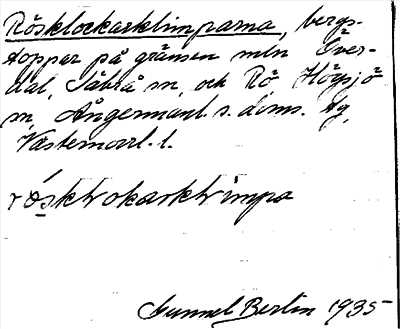 Rösklockarklimparna, bergs-
toppar på gränsen mln Över-
dal, Säbrå sn, och Rö, Högsjö
sn, Ångermanl. s. doms. hg,
Västernorrl. l.
rösktrokarktrimpa
Gunnel Berlin 1935